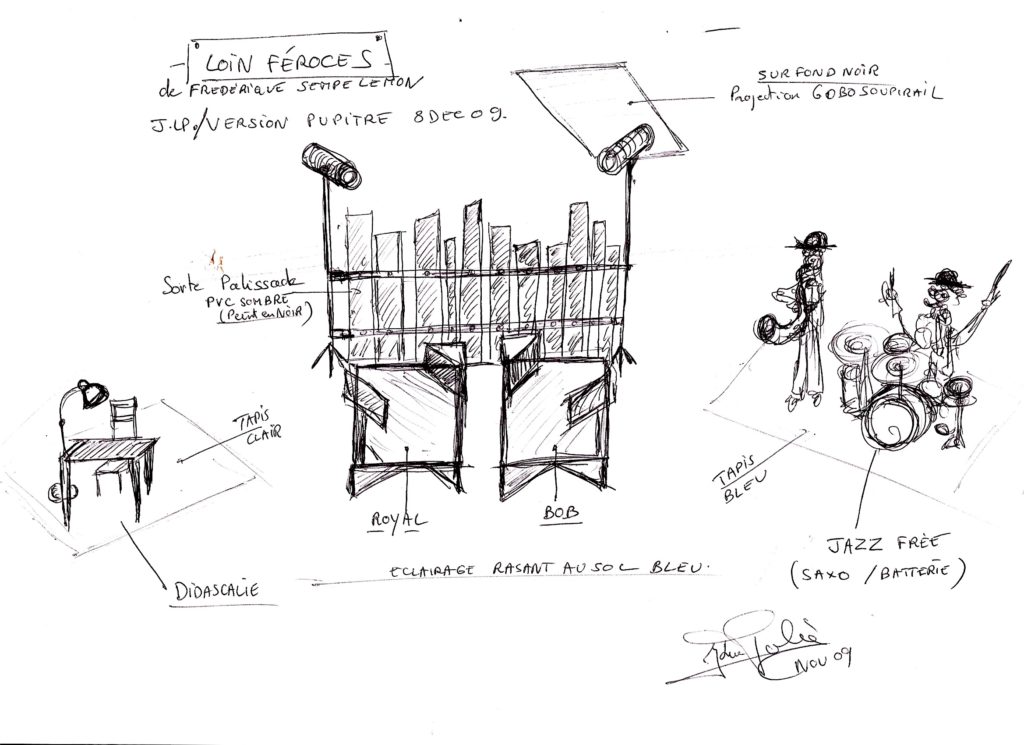 LOIN FÉROCES
de FREDÉRIQUE SEMPE LEMON
J.LP./VERSION PUPITRE 8 DEC 09.
SUR FOND NOIR
Projection GOBO SOUPIRAIL
Sorte Palissade
PVC SOMBRE
(Peint en NOIR)
TAPIS
CLAIR
TAPIS
BLEU
ROYAL
BOB
JAZZ FREE
(SAXO / BATTERIE)
DIDASCALIE
ECLAIRAGE RASANT AU SOL BLEU.
NOV 09